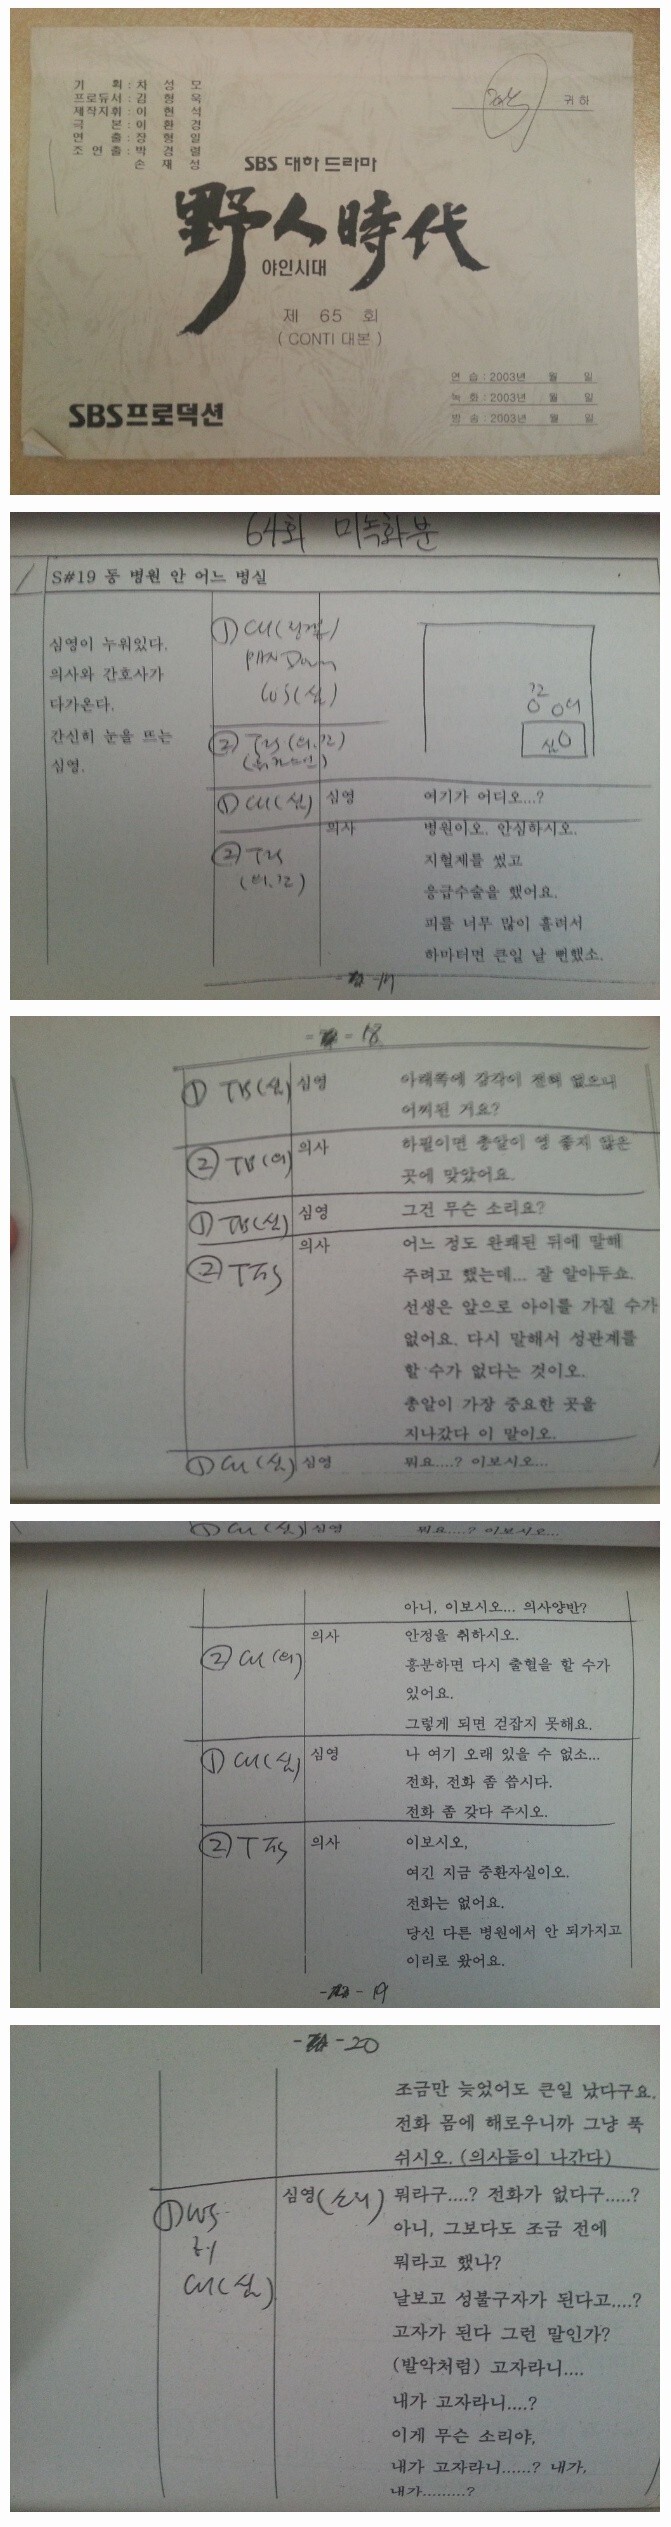 기 획 : 차 성 모
프로듀서 : 김 형 욱
제작지휘 : 이 현 석
극 본 : 이 환 경
연 출 : 장 형 일
조 연 출 : 박 경 렬
손 재 성
귀 하
SBS 대하 드라마
野人時代
야인시대
제 65 회
( CONTI 대본 )
연 습 : 2003년 월 일
녹 화 : 2003년 월 일
방 송 : 2003년 월 일
SBS프로덕션
64회 미녹화분
S#19 동 병원 안 어느 병실
심영이 누워있다.
의사와 간호사가
다가온다.
간신히 눈을 뜨는
심영.
① CU(링겔)
PAN Down
WS(심)
② T2S(의.간)
① CU(심) 심영 여기가 어디오...?
② T2S (의.간) 의사 병원이오. 안심하시오.
지혈제를 썼고
응급수술을 했어요.
피를 너무 많이 흘려서
하마터면 큰일 날 뻔했소.
- 17
- 18
① TB(심) 심영 아래쪽에 감각이 전혀 없으니
어찌된 거요?
② TB(의) 의사 하필이면 총알이 영 좋지 않은
곳에 맞았어요.
① TB(심) 심영 그건 무슨 소리요?
② T2S 의사 어느 정도 완쾌된 뒤에 말해
주려고 했는데... 잘 알아두쇼.
선생은 앞으로 아이를 가질 수가
없어요. 다시 말해서 성관계를
할 수가 없다는 것이오.
총알이 가장 중요한 곳을
지나갔다 이 말이오.
① CU(심) 심영 뭐요....? 이보시오...
① CU(심) 심영 뭐요....? 이보시오...
아니, 이보시오... 의사양반?
② CU(의) 의사 안정을 취하시오.
흥분하면 다시 출혈을 할 수가
있어요.
그렇게 되면 걷잡지 못해요.
① CU(심) 심영 나 여기 오래 있을 수 없소...
전화, 전화 좀 씁시다.
전화 좀 갖다 주시오.
② T2S 의사 이보시오,
여긴 지금 중환자실이오.
전화는 없어요.
당신 다른 병원에서 안 되가지고
이리로 왔어요.
- 19
- 20
조금만 늦었어도 큰일 났다구요.
전화 몸에 해로우니까 그냥 푹
쉬시오. (의사들이 나간다)
① WS 심영(소리) 뭐라구....? 전화가 없다구.....?
CU(심) 아니, 그보다도 조금 전에
뭐라고 했나?
날보고 성불구자가 된다고....?
고자가 된다 그런 말인가?
(발악처럼) 고자라니....
내가 고자라니....?
이게 무슨 소리야,
내가 고자라니......? 내가,
내가.........?